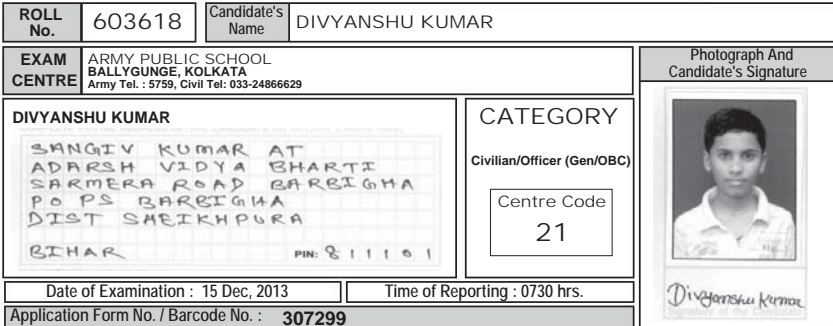 ROLL No. 603618 Candidate's Name DIVYANSHU KUMAR
EXAM CENTRE
ARMY PUBLIC SCHOOL
BALLYGUNGE, KOLKATA
Army Tel. : 5759, Civil Tel: 033-24866629
Photograph And
Candidate's Signature
DIVYANSHU KUMAR
SANGIV KUMAR AT
ADARSH VIDYA BHARTI
SARMERA ROAD BARBIGHA
PO PS BARBIGHA
DIST SHEIKHPURA
BIHAR PIN: 811101
CATEGORY
Civilian/Officer (Gen/OBC)
Centre Code
21
Divyanshu Kumar
Signature of the Candidate
Date of Examination : 15 Dec, 2013 Time of Reporting : 0730 hrs.
Application Form No. / Barcode No. : 307299